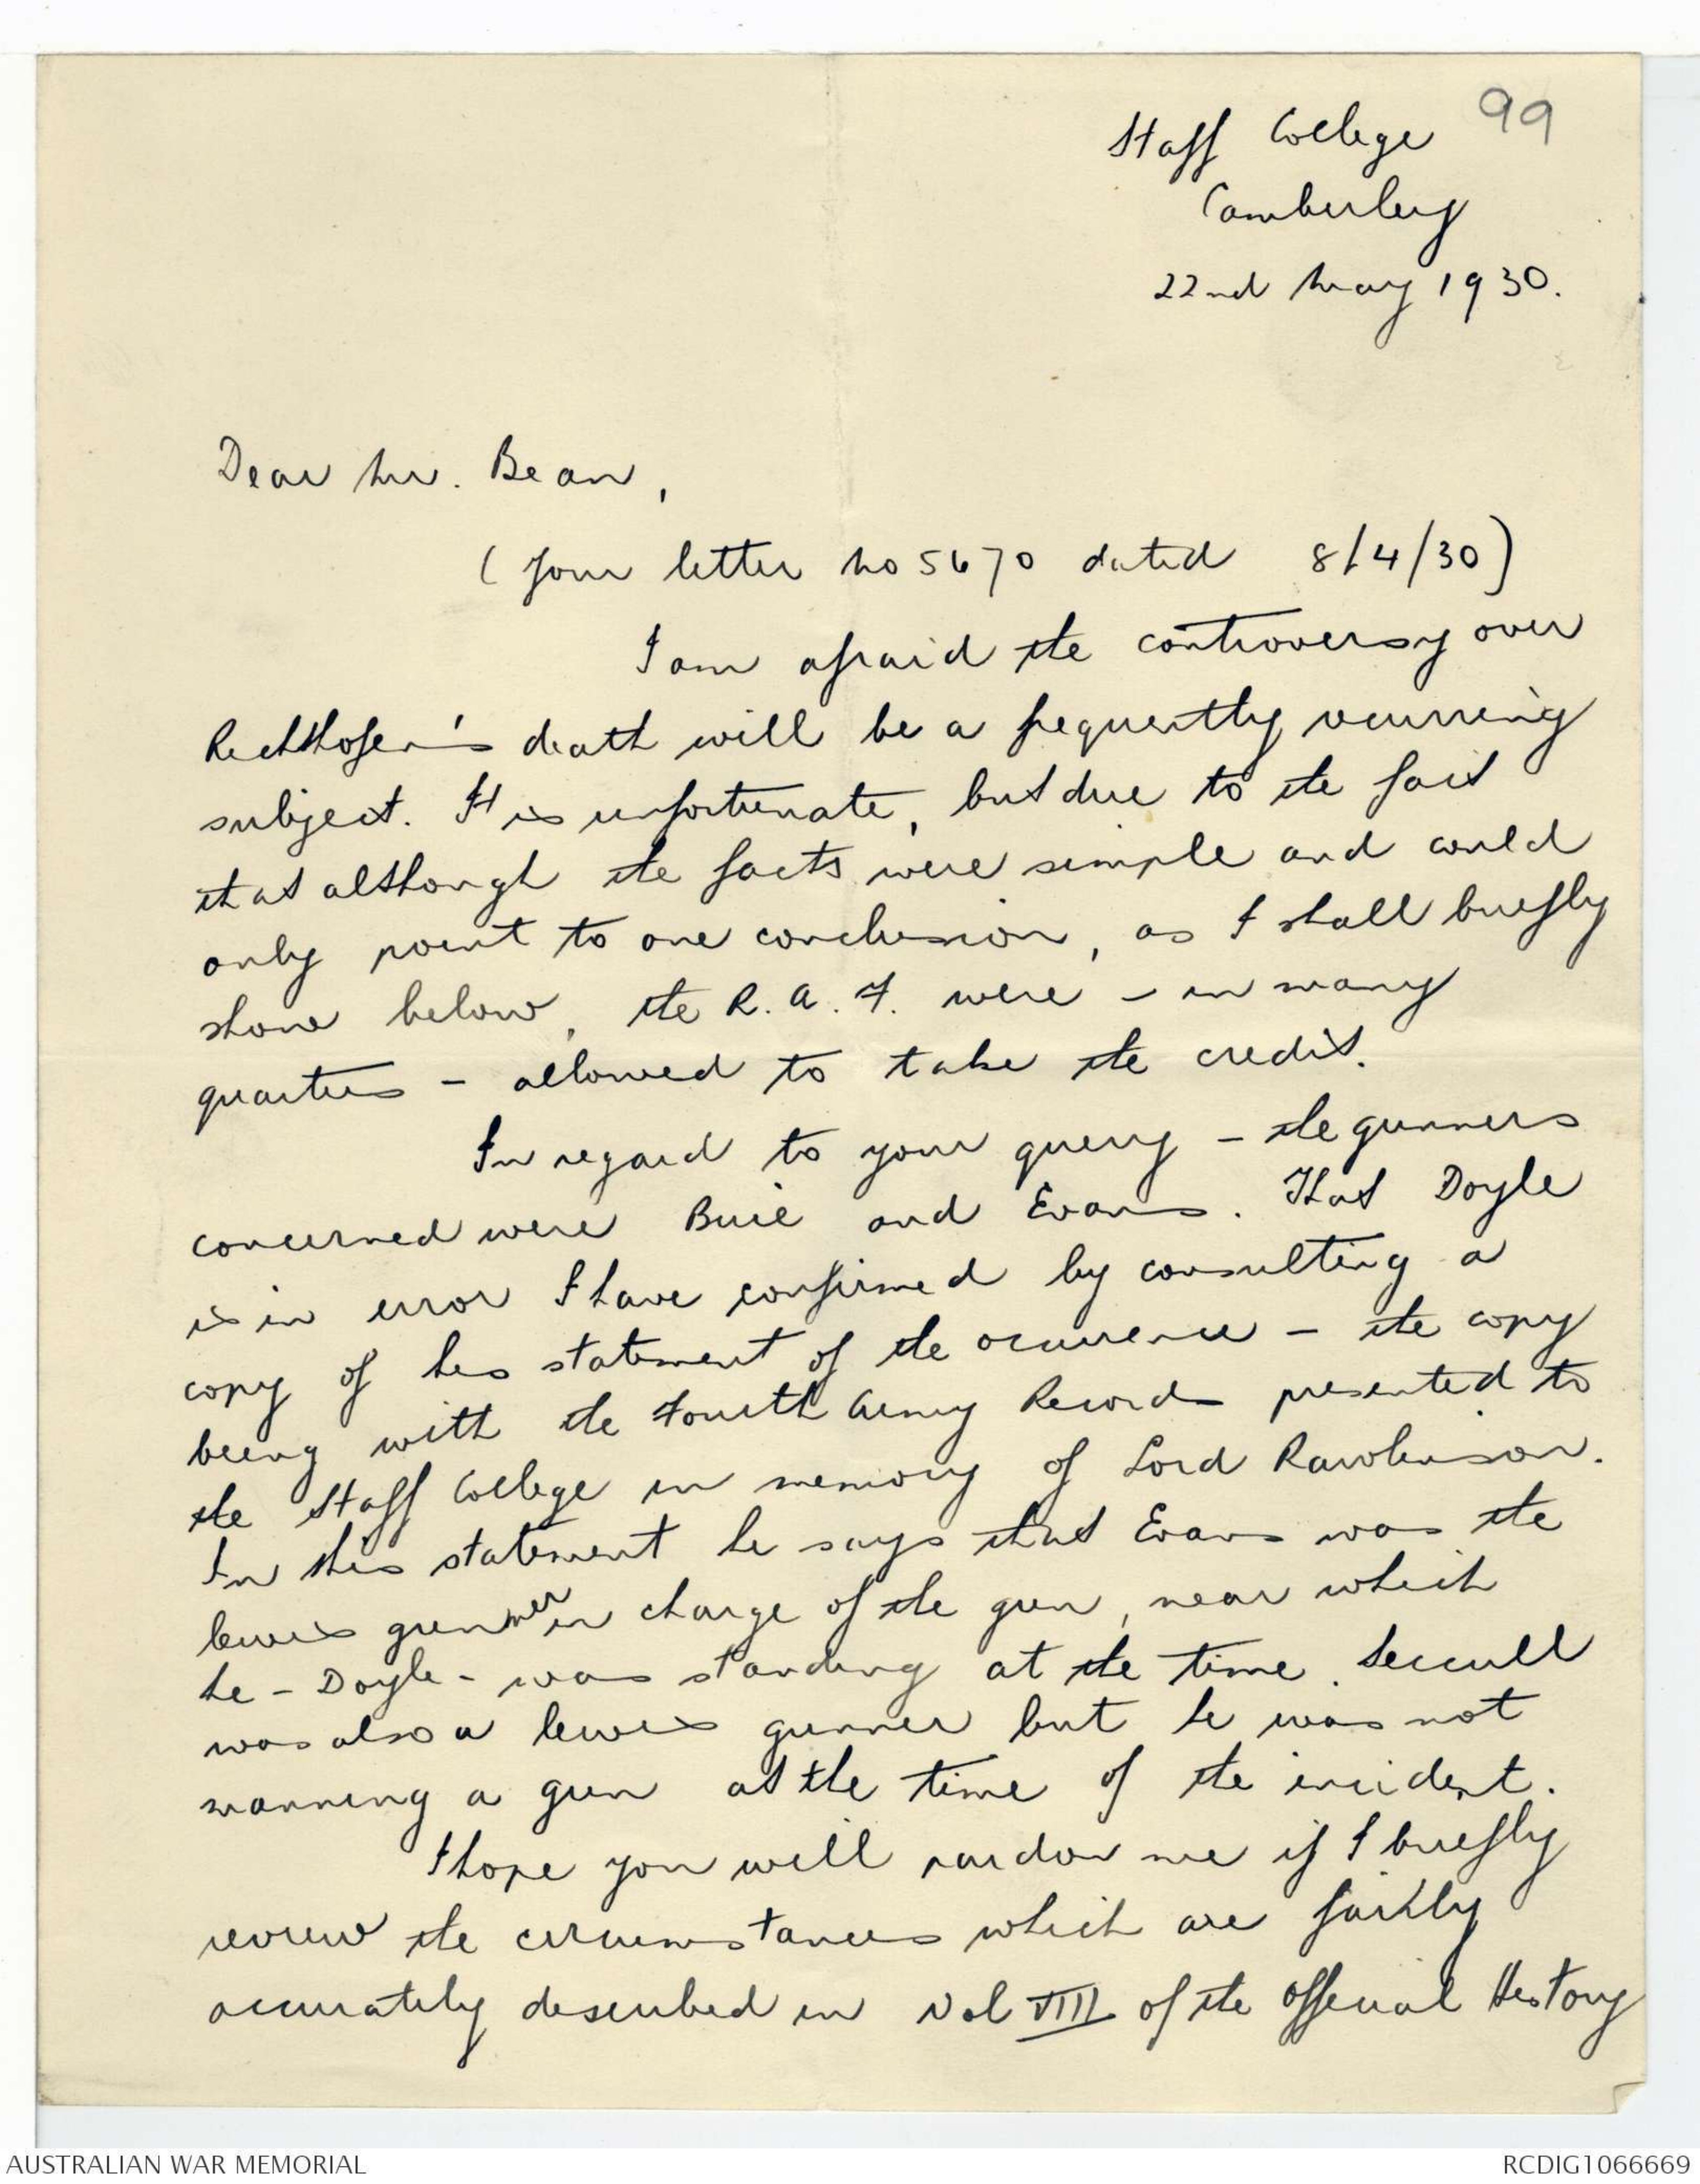 99
Staff College
Camberley
22nd May 1930.
Dear Mr. Bean,
(Your letter No 5670 dated 8/4/30)
I am afraid the controversy over
death will be a frequently recurring
subject. It is unfortunate, but due to the fact
that although the facts were simple and could
only point to one conclusion, as I shall briefly
show below, the R.A.F. were - in many
quarters - allowed to take the credit.
In regard to your query - the gunners
concerned were Buie and Evans. That Doyle
is in error I have confirmed by consulting a
copy of his statement of the occurrence - the copy
being with the Fourth Army Records presented to
the Staff College in memory of Lord Rawlinson.
In this statement he says that Evans was the
lewis gunner in charge of the gun, near which
he - Doyle - was standing at the time.
was also a lewis gunner but he was not
manning a gun at the time of the incident.
I hope you will pardon me if I briefly
review the circumstances which are fairly
accurately described in Vol VIII of the Official History
AUSTRALIAN WAR MEMORIAL
RCDIG1066669